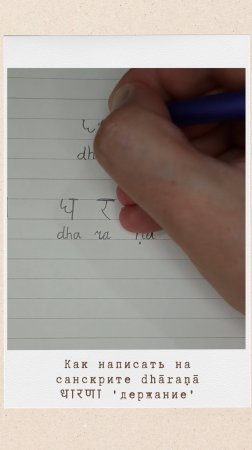 ध र
dha ra ṇa
Как написать на
санскрите dhāraṇā
धारणा 'держание'